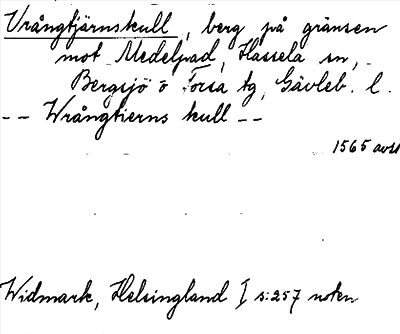 Vrångtjärnskull, berg på gränsen
mot Medelpad, Hassela sn,
Bergsjö o Forsa tg, Gävleb. l.
-- Wrångtierns kull --
1565 avskr
Widmark, Helsingland I s: 257 noten